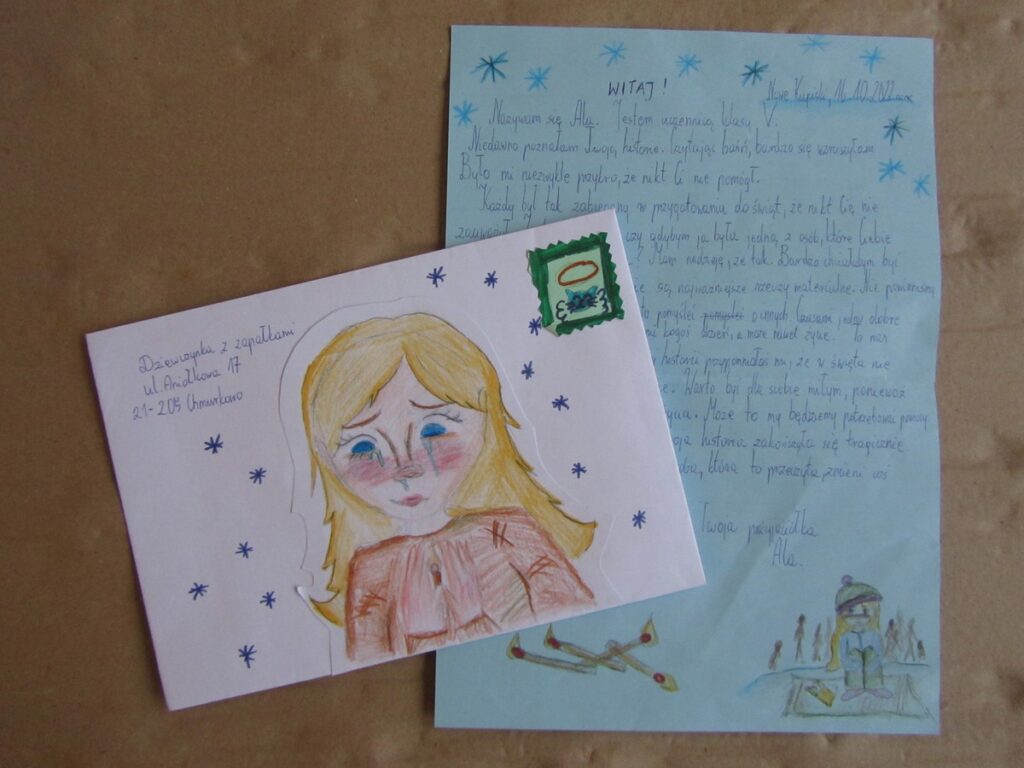 Dziewczynka z zapałkami
ul. Aniołkowa 17
21-209 Chmurkowo
WITAJ!
Nowe Kupiski, 16.10.2022
Nazywam się Ala. Jestem uczennicą klasy V.
Niedawno poznałam Twoją historię. Czytając baśń, bardzo się wzruszyłam.
Było mi niezwykle przykro, że nikt Ci nie pomógł.
Każdy był tak zabiegany w przygotowania do świąt, że nikt Cię nie
czy gdybym ja była jedną z osób, które Ciebie
? Mam nadzieję, że tak. Bardzo chciałabym być
są najważniejsze rzeczy materialne. Nie powinniśmy
pomyśleć pomyśleć o innych. Czasami jedno dobre
kogoś dzień, a może nawet życie. To nas
historii przypomniałaś mi, że w święta nie
Warto być dla siebie miłym, ponieważ
Może to my będziemy potrzebowa pomocy
historia zakończyła się tragicznie
która to przeczyta, zmieni coś
Twoja przyjaciółka
Ala.